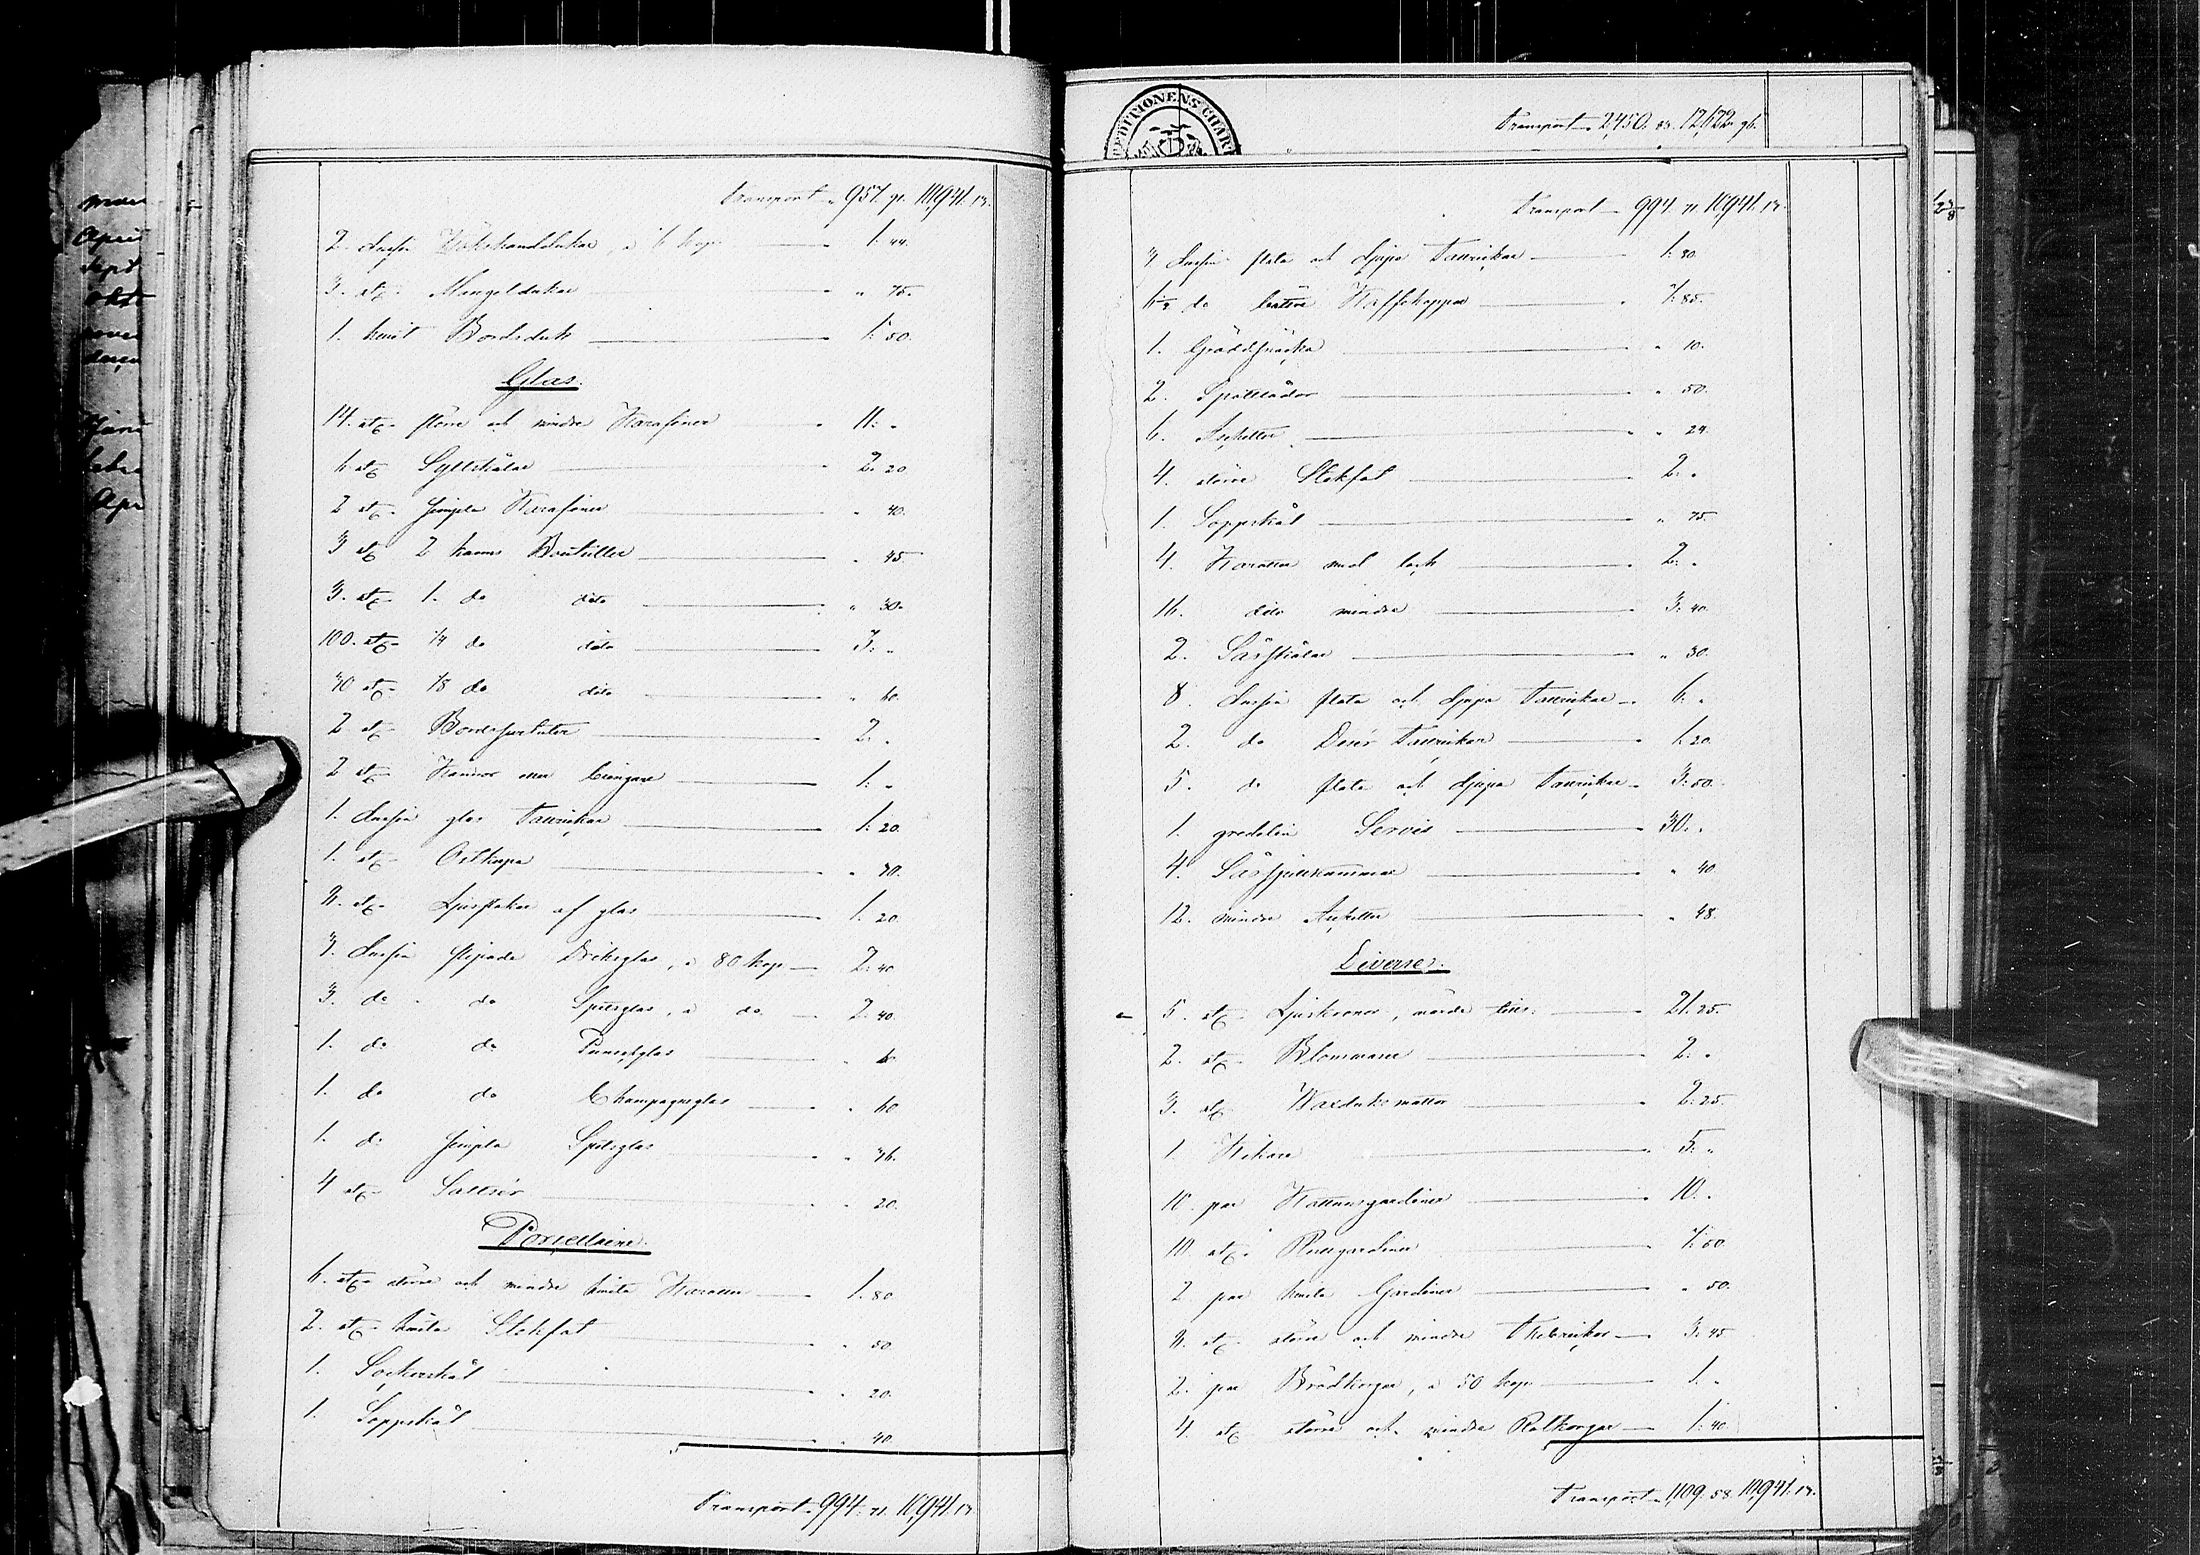 Transport „ 957. 91. 10,941. 17.
2. dussin Kökshanddukar, à 6 kop — 1: 44.
3. st. Mangeldukar — „ 75.
1. hvit Bordsduk — 1: 50.
Glas.
14. st. större och mindre Karafiner — 11: „
6 st. Syltskålar — 2: 20
2 st. simpla Karafiner — „ 40.
3 st. 2 kanns Bouteiller — „ 45
3. st. 1. do dito — „ 30.
100. st. 1/4 do dito — 3: „
30 st. 1/8 do dito — „ 60.
2 st. Bordssurtuter — 2: „
2 st. Kannor — 1: „
1. dussin glas Tallrickar — 1: 20.
1. st. Ostkupa — „ 30.
st. Ljusstakar af glas — 1: 20.
3. dussin slipade Dricksglas, à 80 kop — 2: 40
3. do do Spitsglas, à do. — 2: 40.
1. do do Punschglas — „ 60
1. do do Champagneglas — „ 60
1. do simpla Spitsglas — „ 36.
4 st. Saltkör — „ 20.
Porcellaine.
6. st. större och mindre hvita Karotter — 1. 80
2. st. hvita Stekfat — „ 50
1. Sockerskål — „ 20.
1. Soppskål — „ 40.
Transport „ 994. 71. 10,941. 17.
EXPEDITIONENS CHART
Transport „ 2,450. 83. 12,672. 96.
Transport „ 994. 71. 10,941. 17.
3 dussin flata och djupa Tallrickar — 1: 80.
6 1/2 do bättre Kaffekoppar — 7: 85.
1. Gräddsnäcka — „ 10.
2. Spottlådor — „ 50.
6. Assietter — „ 24.
4. större Stekfat — 2: „
1. Soppskål — „ 75.
4. Karotter med lock — 2: „
16. dito mindre — 3: 40.
2. Såsskålar — „ 30.
8 dussin flata och djupa Tallrickar — 6: „
2. do Desér Tallrickar — 1: 20.
5. do flata och djupa Tallrickar — 3: 50.
1. gredelin Servis — 30: „
4. Såssnipkannor — „ 40.
12. mindre Assietter — „ 48.
Diverse.
5. st. Ljuskronor, värde — 21: 25.
2. st. Blomvaser — 2: „
3. st. Vaxduksmattor — 2: 25.
1. Kikare — 5: „
10 par Kattunsgardiner — 10: „
10. st. Rullgardiner — 7: 50.
2 par hvita Gardiner — „ 50.
st. större och mindre Thebrickor — 3: 45
2. par Brödkorgar, à 50 kop — 1: „
4. st. större och mindre Rotkorgar — 1: 40.
Transport „ 1,109. 58. 10,941. 17.